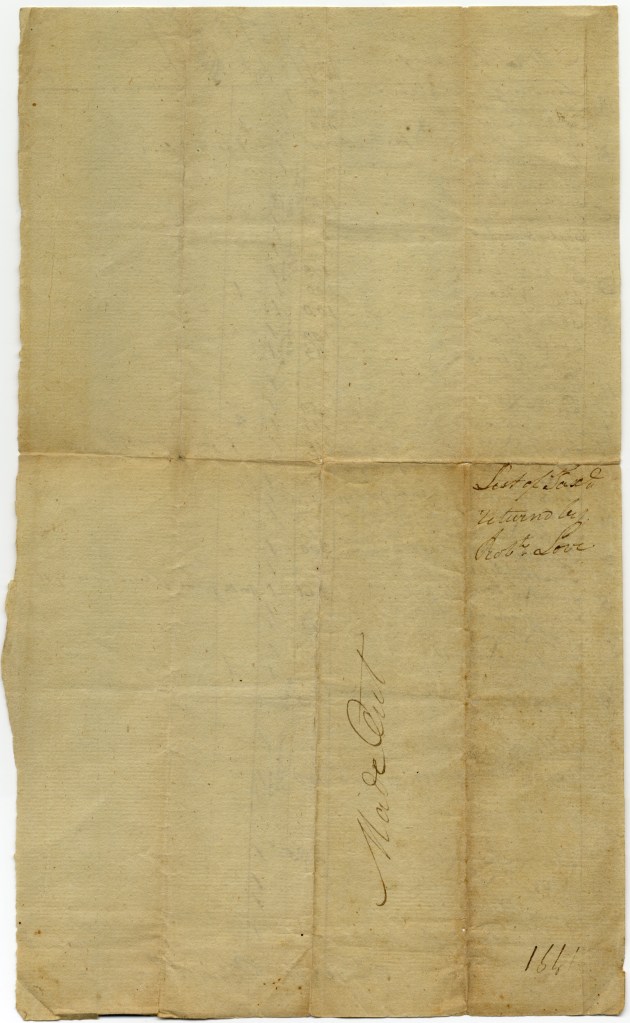 List of Tax'd
returnd by
Rob.t Love
Made Out
164